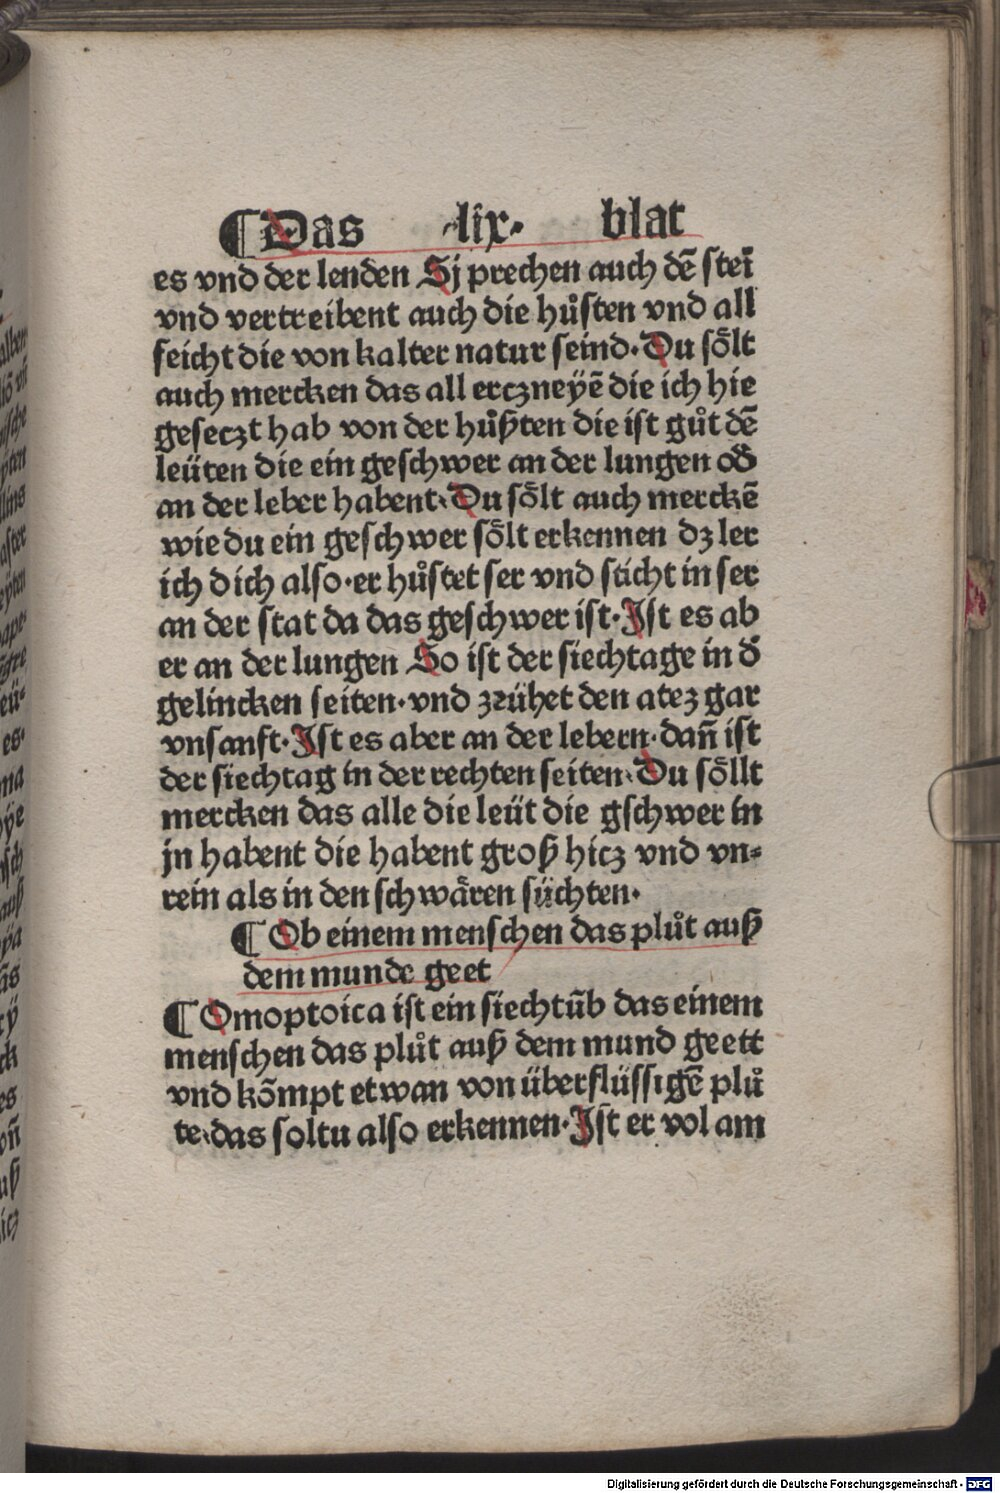 ¶ Das ·lix· blat
es vnd der lenden Sj prechen auch dē steī
vnd vertreibent auch die hůsten vnd all
feicht die von kalter natur seind. Du sȫlt
auch mercken das all erczneyē die ich hie
geseczt hab von der hůßten die ist gůt dē
leüten die ein geschwer an der lungen od̕
an der leber habent. Du sȫlt auch merckē
wie du ein geschwer sȫlt erkennen dz ler
ich dich also. er hůstet ser vnd sticht in ser
an der stat da das geschwer ist. Ist es ab
er an der lungen So ist der siechtage in d̕
gelincken seiten. vnd zrühet den atez gar
vnsanft. Ist es aber an der lebern. dañ ist
der siechtag in der rechten seiten. Du sȫllt
mercken das alle die leüt die gschwer in
jn habent die habent groß hicz vnd vn-
rein als in den schwären süchten.
¶ Ob einem menschen das plůt auß
dem munde geet
¶ Omoptoica ist ein siechtūb das einem
menschen das plůt auß dem mund geett
vnd kōmpt etwan von überflüssigē plů
te. das soltu also erkennen. Ist er vol am
alben
vñ
ische
yten
llins
aster
eyten
es.
ma
ÿe
sch
auß
ck
es
oñ
uß
icz
Digitalisierung gefördert durch die Deutsche Forschungsgemeinschaft - DFG